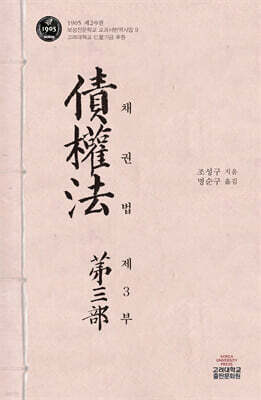 1905
1905 제2수권
보성전문학교 교과서번역사업 9
고려대학교 仁星기금 후원
債權法 第三部
채권법 제3부
조성구 지음
명순구 옮김
KOREA
UNIVERSITY
PRESS
고려대학교
출판문화원